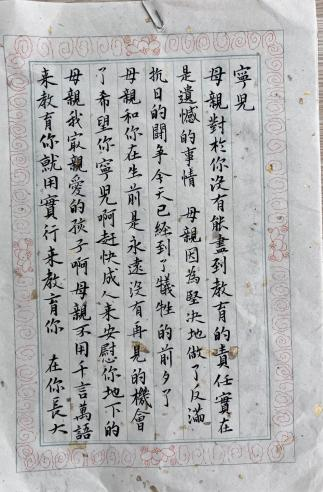 寧兒
母親對於你沒有能盡到教育的責任實在
是遺憾的事情 母親因為堅決地做了反滿
抗日的鬪爭今天已經到了犧牲的前夕了
母親和你在生前是永遠沒有再見的機會
了希望你寧兒啊趕快成人來安慰你地下的
母親我最親愛的孩子啊母親不用千言萬語
來教育你就用實行來教育你 在你長大